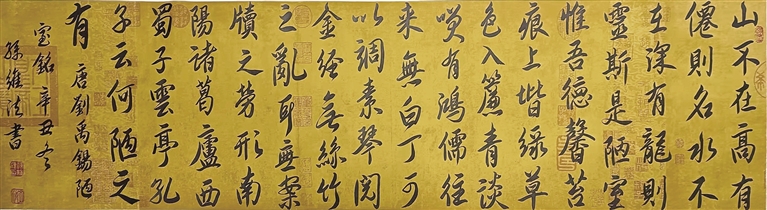 山不在高有
僊則名水不
在深有龍則
靈斯是陋室
惟吾德馨苔
痕上堦緑草
色入簾青談
咲有鴻儒往
来無白丁可
以調素琴閲
金經無絲竹
之亂耳無案
牘之勞形南
陽諸葛廬西
蜀子雲亭孔
子云何陋之
有 唐劉禹錫陋
室銘 辛丑冬
孫維 書